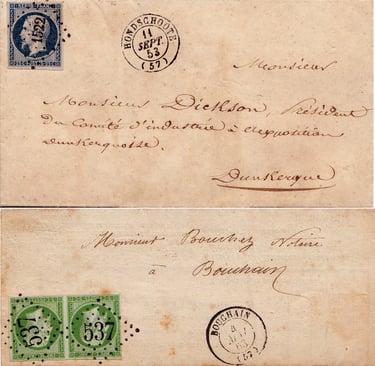 REPUB. FRANC.
1522
HONDSCHOOTE
11
SEPT.
53
(57)
Monsieur
Monsieur Dickson, Président
du Comité d'industrie à l'exposition
Dunkerquoise.
Dunkerque
Monsieur Bouchez Notaire
à Bouchain
537
537
BOUCHAIN
8
63
(57)